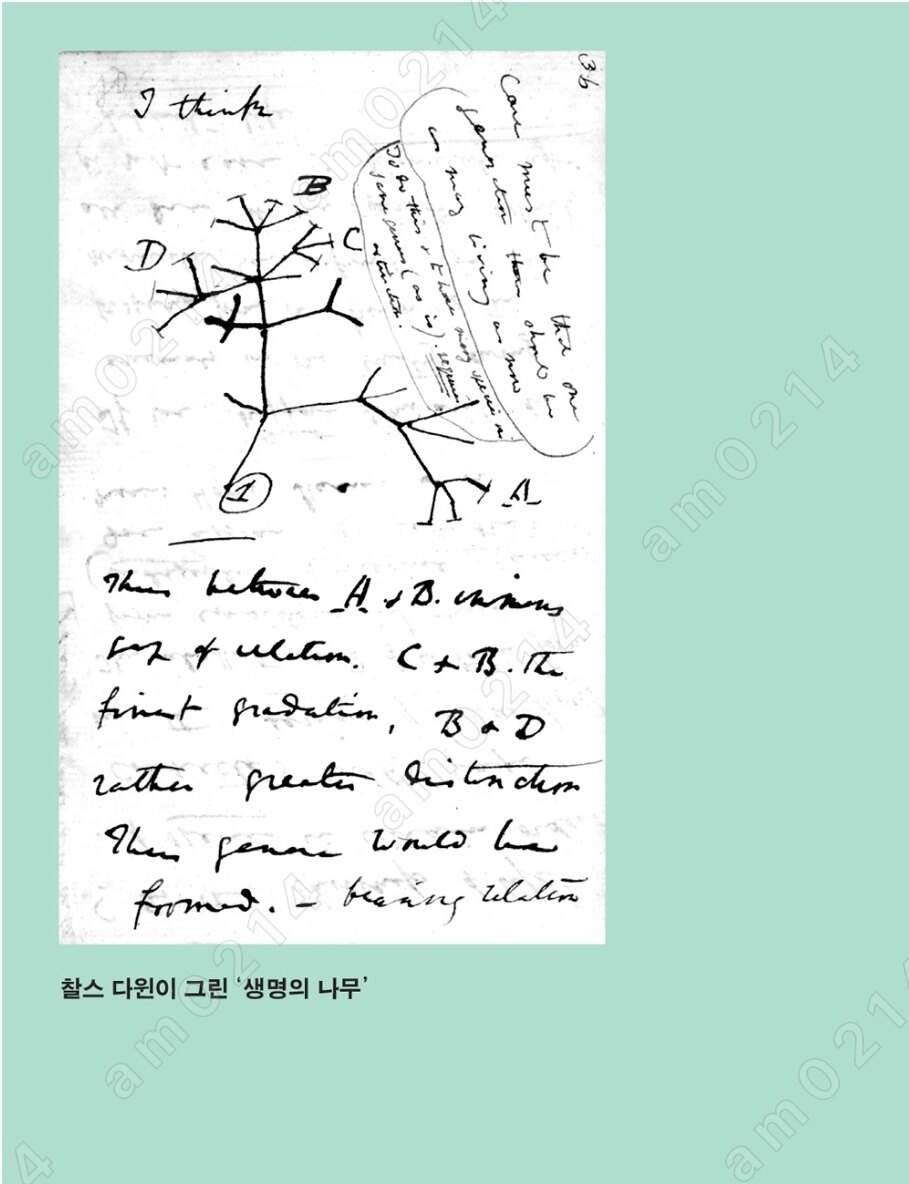 36
I think
Case must be that one
generation then should be
as many living as now
To do this & to have many species in
same genus (as is). requires
extinction.
B
D
C
A
1
Thus between A & B. immense
gap of relation. C & B. the
finest gradation, B & D
rather greater distinction
Thus genera would be
formed. — bearing relation
찰스 다윈이 그린 ‘생명의 나무’
am0214
am0214
am0214
am0214
am0214
am0214
am0214
am0214